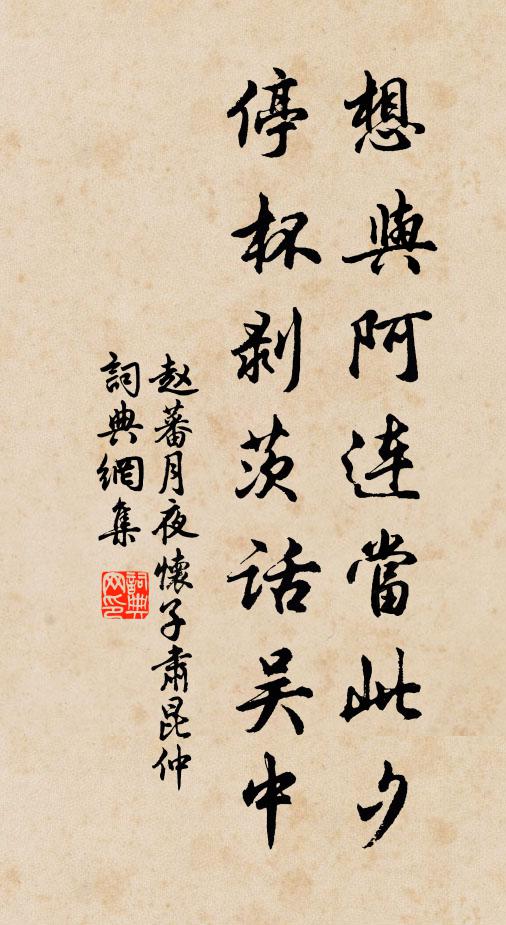 想與阿連當此夕
停杯剥茨話吴中
赵蕃月夜懷子肅昆仲
詞典網集
詞典網印